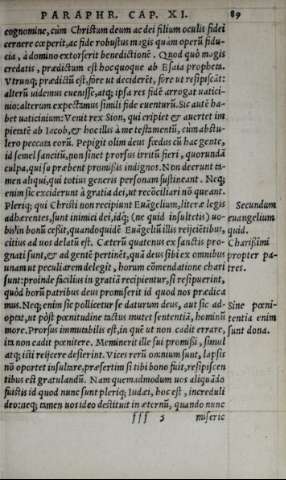 PARAPHR. CAP. XI. 89
cognomine, cùm Christum deum ac dei filium oculis fidei
cernere cœperit, ac fide robustus magis quàm operũ fidu-
cia, à domino extorserit benedictionẽ. Quod quò magis
credatis, prædictum est hoc quoque ab Esaia propheta.
Vtrunq; prædictũ est, fore ut deciderẽt, fore ut resipiscãt:
alterũ uidemus euenisse, atq; ipsa res fidẽ arrogat uatici-
nio: alterum expectamus simili fide euenturũ. Sic autẽ ha-
bet uaticinium: Venit rex Sion, qui eripiet & auertet im
pietatẽ ab Iacob, & hoc illis à me testamentũ, cum abstu-
lero peccata eorũ. Pepigit olim deus fœdus cũ hac gente,
id semel sancitũ, non sinet prorsus irritũ fieri, quorundã
culpa, qui sa præbent promißis indignos. Non decrunt ta-
men aliqui, qui totius generis personam sustineant. Neq;
enim sic exciderunt à gratia dei, ut recõciliari nõ queant.
Pleriq; qui Christi non recipiunt Euãgelium, literæ legis Secundum
adhærentes, sunt inimici dei, idq; (ne quid insultetis) uo- euangelium
bis in bonũ ceßit, quandoquidẽ Euãgeliũ illis reijciẽtibus, quid.
citius ad uos delatũ est. Cæterũ quatenus ex sanctis pro- Charißimi
gnati sunt, & ad gentẽ pertinẽt, quã deus sibi ex omnibus propter pa-
unam ut peculiarem delegit, horum cõmendatione chari tres.
sunt: proinde facilius in gratiã recipientur, si resipuerint,
quòd horũ patribus deus promiserit id quod nos prædica
mus. Neq; enim sic pollicetur se daturum deus, aut sic ad- Sine pœni-
optat, ut pòst pœnitudine tactus mutet sententiã, hominũ tentia enim
more. Prorsus immutabilis est, in quẽ ut non cadit errare, sunt dona.
ita non cadit pœnitere. Meminerit ille sui promißi, simul
atq; isti reijcere desierint. Vices rerũ omnium sunt, lapsis
nõ oportet insultare, præsertim si tibi bono fuit, resipiscen
tibus est gratulandũ. Nam quemadmodum uos aliquãdo
fuistis id quod nunc sunt pleriq; Iudæi, hoc est, increduli
deo: neq; tamen uos ideo destituit in æternũ, quando nunc
fff 5 miseric